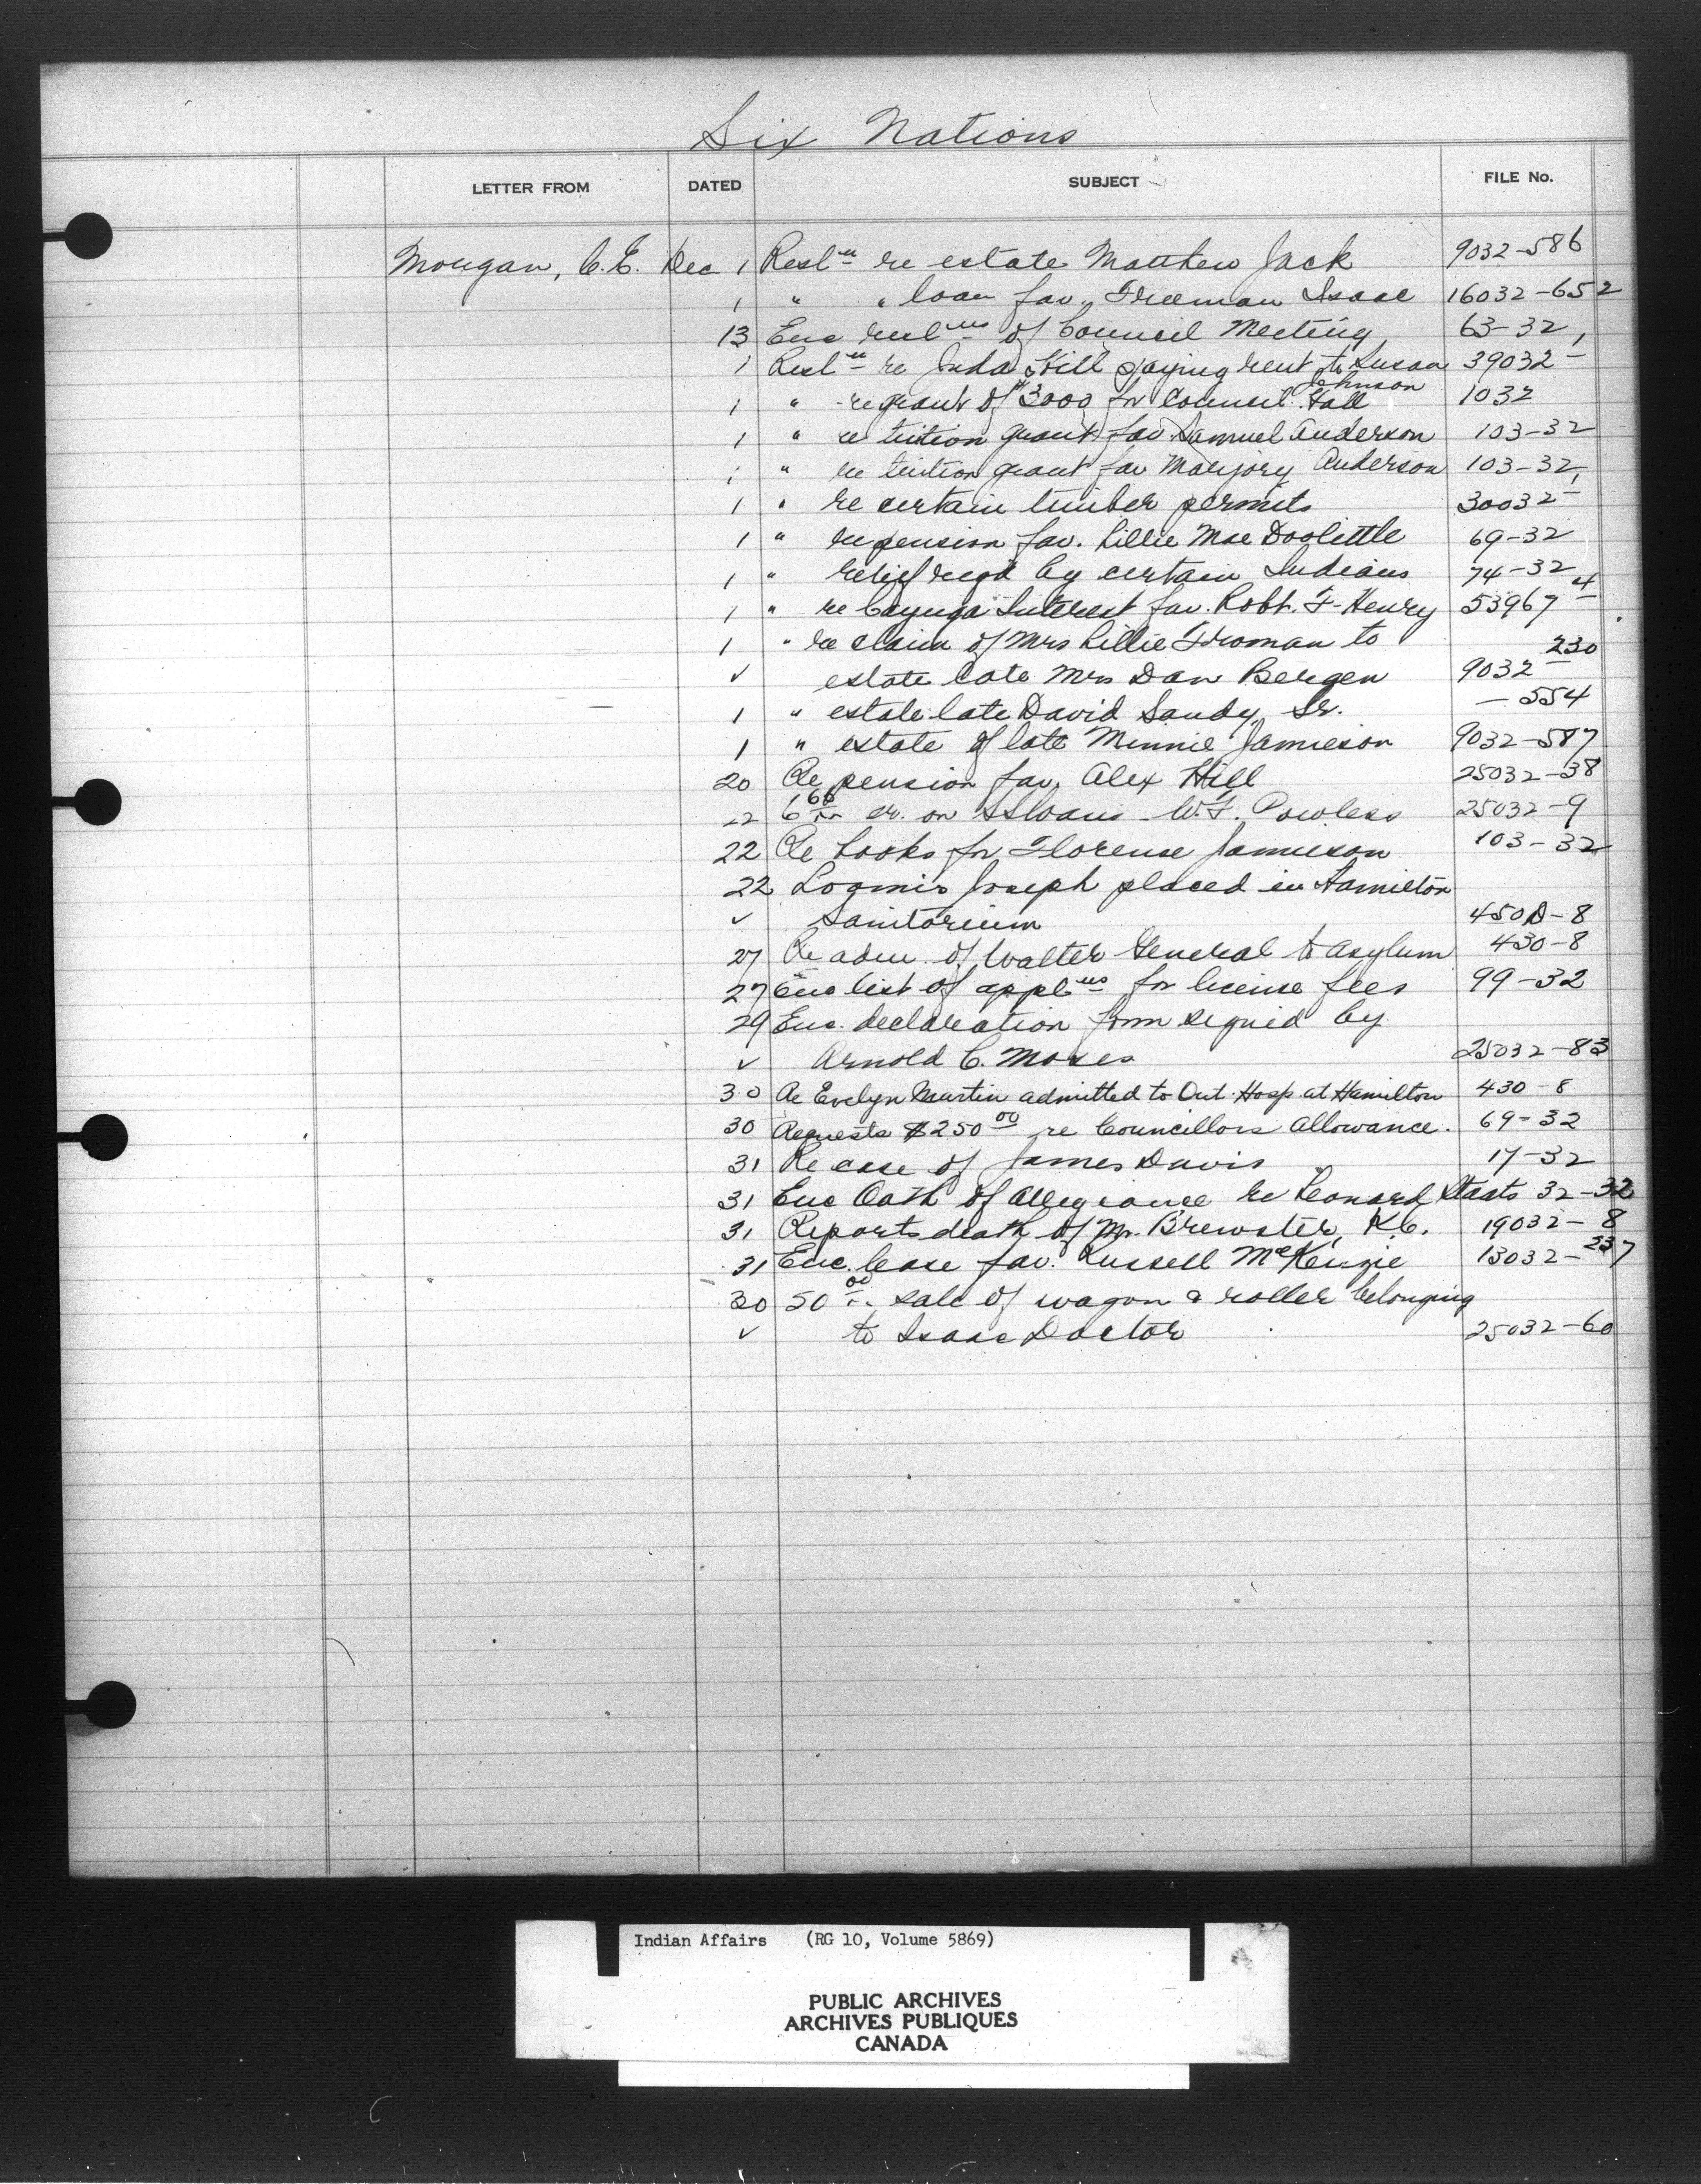 Six Nations
LETTER FROM DATED SUBJECT FILE No.
Morgan, C.E. Dec 1 Resln re estate Matthew Jack 9032-586
1 " " loan fav. Freeman Isaac 16032-652
13 Enc reslns of Council Meeting 63-32
1 Resln re Juda Hill paying rent to Susan Johnson 39032-1
1 " re grant of $3000 for Council Hall 1032
1 " re tuition grant fav. Samuel Anderson 103-32
1 " re tuition grant fav Marjory Anderson 103-32
1 " re certain timber permits 30032-1
1 " re pension fav. Lillie Mae Doolittle 69-32
1 " relief reqd by certain Indians 74-32
1 " re Cayuga Interest fav. Robt. F. Henry 53967-4
1 " re claim of Mrs Lillie Froman to
✓ estate late Mrs Dan Bergen 9032-230
1 " estate late David Sandy, Sr. -554
1 " estate of late Minnie Jamieson 9032-587
20 Re pension fav. Alex Hill 25032-38
22 6 66 cr. on SS loans - W.F. Powless 25032-9
22 Re books for Florence Jamieson 103-32
22 Loomis Joseph placed in Hamilton
✓ Sanitorium 450D-8
27 Re adm. of Walter General to Asylum 430-8
27 Enc list of applns for license fees 99-32
29 Enc. declaration form signed by
✓ Arnold C. Moses 25032-83
30 Re Evelyn Martin admitted to Ont. Hosp at Hamilton 430-8
30 Requests $250 00 re Councillors Allowance. 69-32
31 Re case of James Davis 17-32
31 Enc Oath of Allegiance re Leonard Staats 32-32
31 Reports death of Mr. Brewster, K.C. 19032-8
31 Enc. lease fav. Russell McKenzie 13032-237
30 50 00 sale of wagon & roller belonging
✓ to Isaac Doctor 25032-60
Indian Affairs (RG 10, Volume 5869)
PUBLIC ARCHIVES
ARCHIVES PUBLIQUES
CANADA